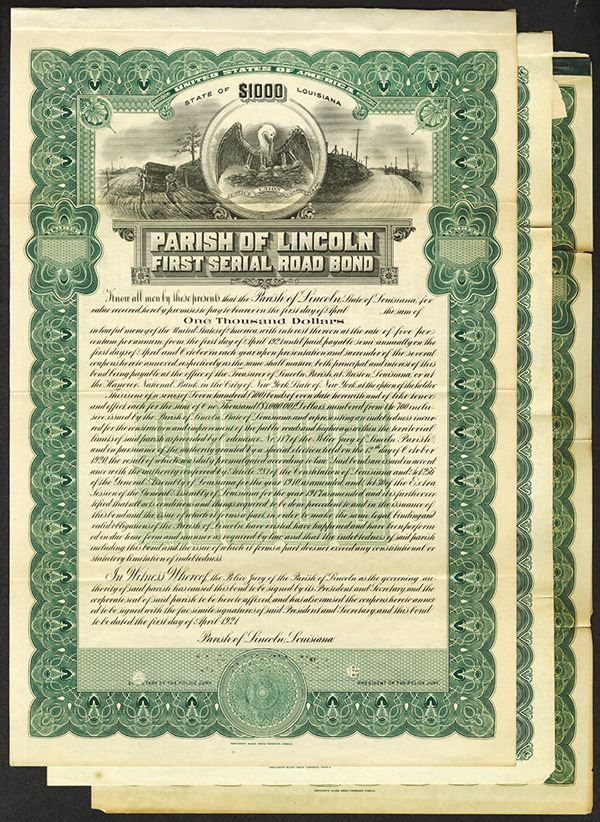 UNITED STATES OF AMERICA
STATE OF $1000 LOUISIANA
UNION
PARISH OF LINCOLN
FIRST SERIAL ROAD BOND
Know all men by these presents that the Parish of Lincoln, State of Louisiana, for
value received hereby promises to pay to bearer on the first day of April the sum of
One Thousand Dollars
in lawful money of the United States of America with interest thereon at the rate of five per
centum per annum, from the first day of April 1921 until paid, payable semi-annually on the
first days of April and October in each year upon presentation and surrender of the several
coupons hereto annexed, respectively, as the same shall mature, both principal and interest of this
bond being payable at the office of the Treasurer of Lincoln Parish, at Ruston, Louisiana, or at
the Hanover National Bank, in the City of New York, State of New York, at the option of the holder.
This is one of a series of Seven hundred (700) bonds of even date herewith and of like tenor
and effect, each for the sum of One Thousand ($1000.00) Dollars, numbered from 1 to 700 inclu-
sive issued by the Parish of Lincoln, State of Louisiana, and representing an indebtedness incur-
red for the construction and improvement of the public roads and highways within the territorial
limits of said parish as provided by Ordinance No. 117 of the Police Jury of Lincoln Parish,
and in pursuance of the authority granted by a special election held on the 12th day of October
1920 the result of which was duly promulgated according to law. Said bonds are issued in accord
ance with the authority conferred by Article 281 of the Constitution of Louisiana and Act 256
of the General Assembly of Louisiana for the year 1910 as amended and Act of the Extra
Session of the General Assembly of Louisiana for the year 1917 as amended and it is further cer
tified that all acts, conditions and things required to be done precedent to and in the issuance of
this bond and the issue of which it forms a part, in order to make the same legal, binding and
valid obligations of the Parish of Lincoln, have existed, have happened and have been perform
ed in due time, form and manner as required by law, and that the indebtedness of said parish
including this bond and the issue of which it forms a part does not exceed any constitutional or
statutory limitation of indebtedness.
In Witness Whereof, the Police Jury of the Parish of Lincoln as the governing au-
thority of said parish has caused this bond to be signed by its President and Secretary, and the
corporate seal of said parish to be hereto affixed, and has also caused the coupons hereto annex
ed to be signed with the facsimile signatures of said President and Secretary, and this bond
to be dated the first day of April 1921.
Parish of Lincoln, Louisiana
BY
SECRETARY OF THE POLICE JURY.
PRESIDENT OF THE POLICE JURY.